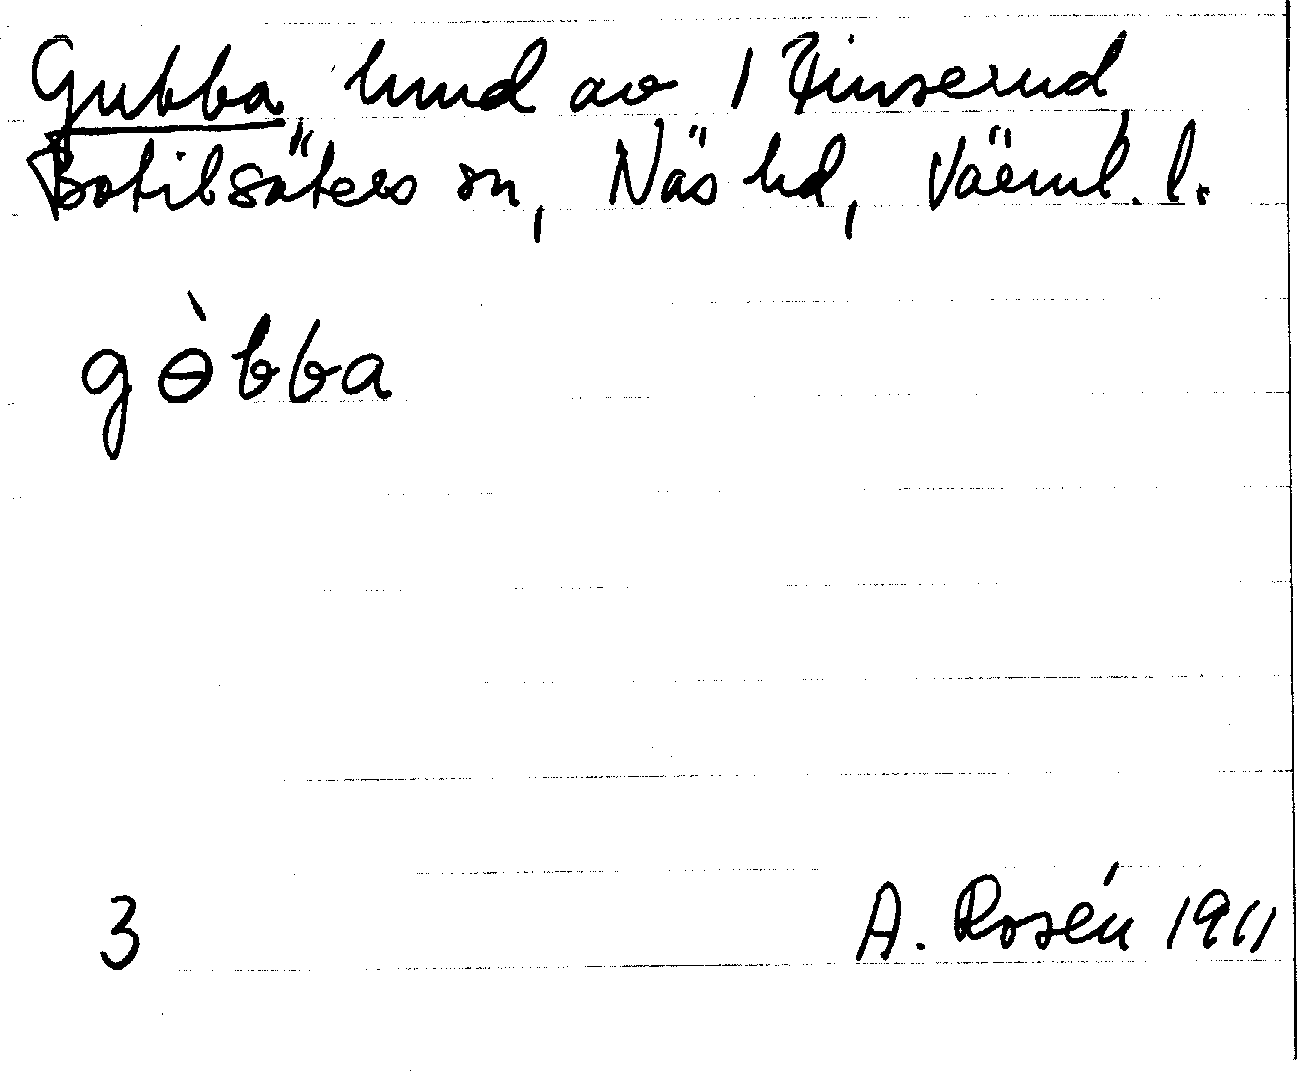 Gubba, hmd av 1 Finserud
Botilsäters sn, Näs hd, Värml. l.
gѳ̀bba
3
A. Rosén 1911